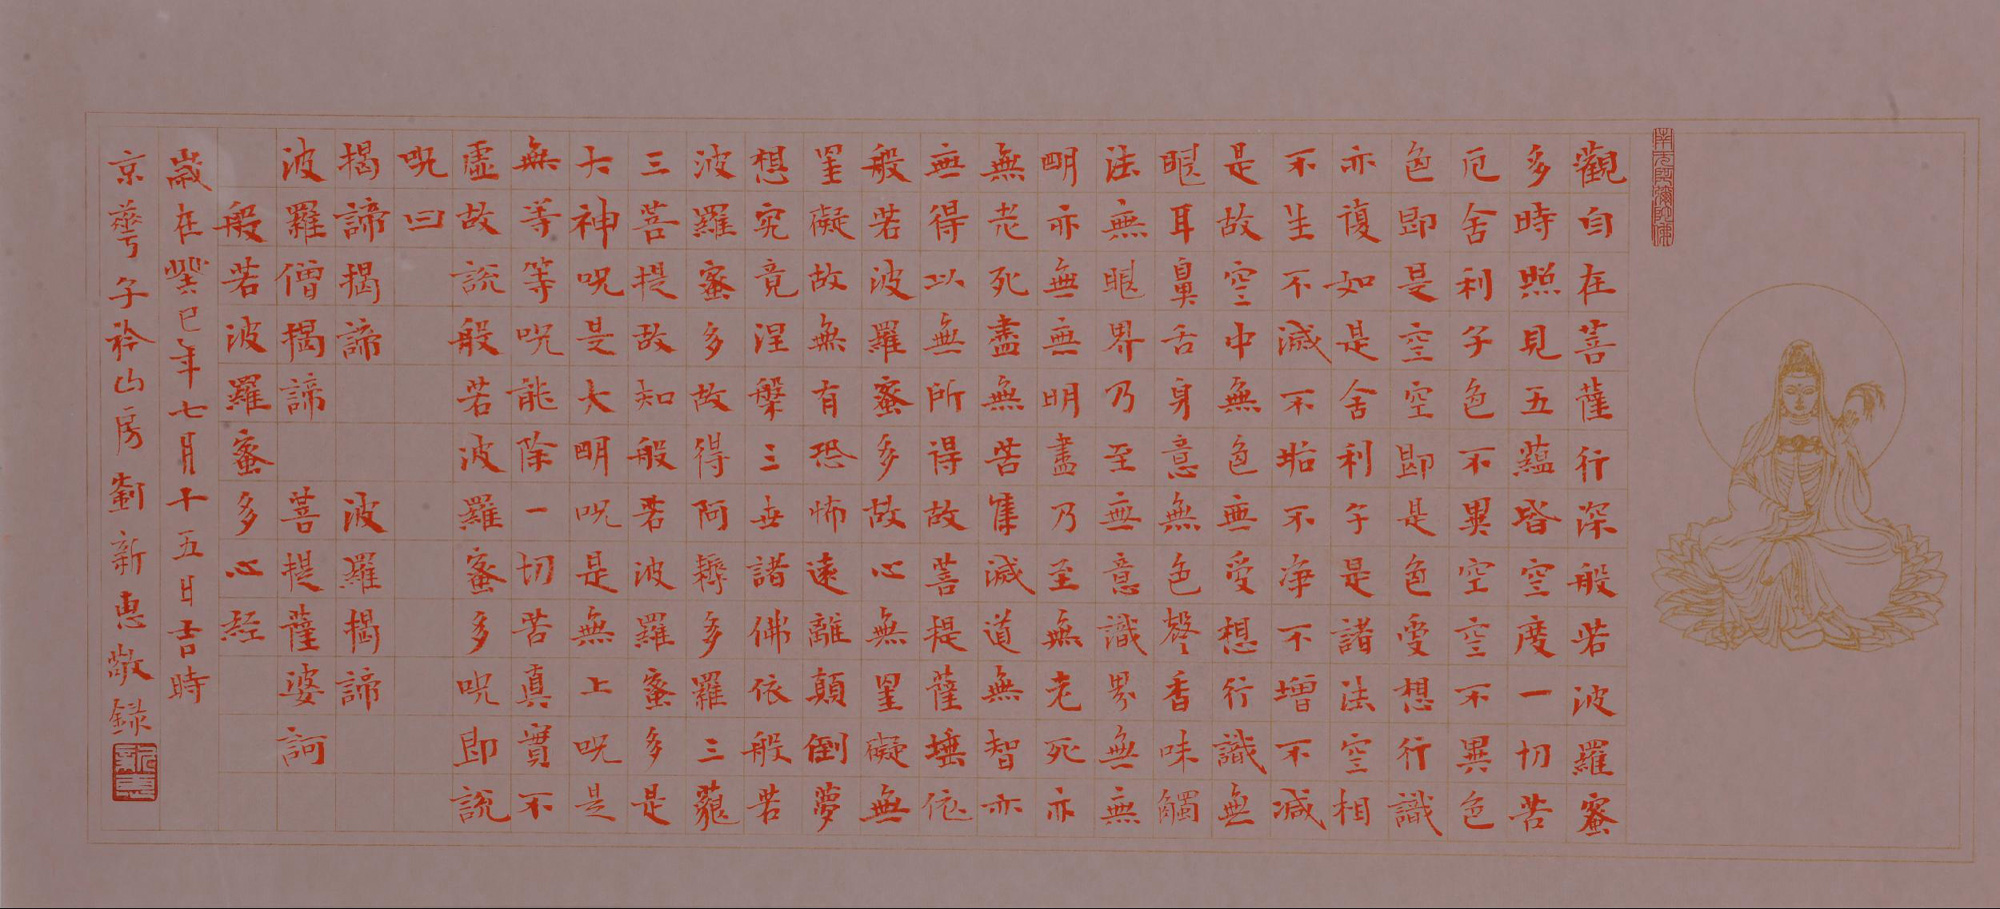 南无阿彌陀佛
觀自在菩薩行深般若波羅蜜
多時照見五蘊皆空度一切苦
厄舍利子色不異空空不異色
色即是空空即是色受想行識
亦復如是舍利子是諸法空相
不生不滅不垢不净不增不減
是故空中無色無受想行識無
眼耳鼻舌身意無色聲香味觸
法無眼界乃至無意識界無無
明亦無無明盡乃至無老死亦
無老死盡無苦集滅道無智亦
無得以無所得故菩提薩埵依
般若波羅蜜多故心無罣礙無
罣礙故無有恐怖遠離顛倒夢
想究竟涅槃三世諸佛依般若
波羅蜜多故得阿耨多羅三藐
三菩提故知般若波羅蜜多是
大神呪是大明呪是無上呪是
無等等呪能除一切苦真實不
虛故説般若波羅蜜多呪即説
呪曰
揭諦揭諦 波羅揭諦
波羅僧揭諦 菩提薩婆訶
般若波羅蜜多心経
歲在癸巳年七月十五日吉時
京華子衿山房劉新惠敬録
新惠